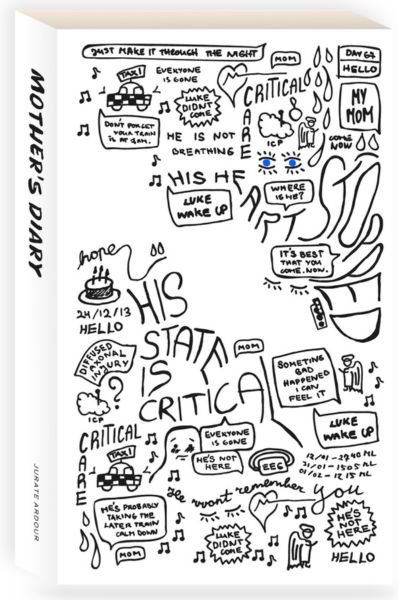 MOTHER'S DIARY
JURATE ARDOUR
JUST MAKE IT THROUGH THE NIGHT
MOM
DAY 67
HELLO
TAXI
EVERYONE
IS GONE
LUKE
DIDN'T
COME
CRITICAL
CARE
MY
MOM
DON'T FORGET
YOUR TRAIN
IS AT 9AM.
HE IS NOT
BREATHING
ICP
COME
NOW
HIS HEART STO
LUKE
WAKE UP
WHERE
IS HE?
IT'S BEST
THAT YOU
COME. NOW.
hope
24/12/13
HELLO
HIS
STATE
IS
CRITICAL
MOM
DIFFUSED
AXONAL
INJURY
?
ICP
SOMETING
BAD
HAPPENED
I CAN
FEEL IT
LUKE
WAKE UP
CRITICAL
CARE
TAXI
EVERYONE
IS GONE
HE'S NOT
HERE
EEG
12/01 - 2740 ML
21/01 - 1505 ML
01/02 - 1215 ML
He won't remember you
HE'S PROBABLY
TAKING THE
LATER TRAIN
CALM DOWN
MOM
LUKE
DIDN'T
COME
MOM
HE'S
NOT
HERE
HELLO